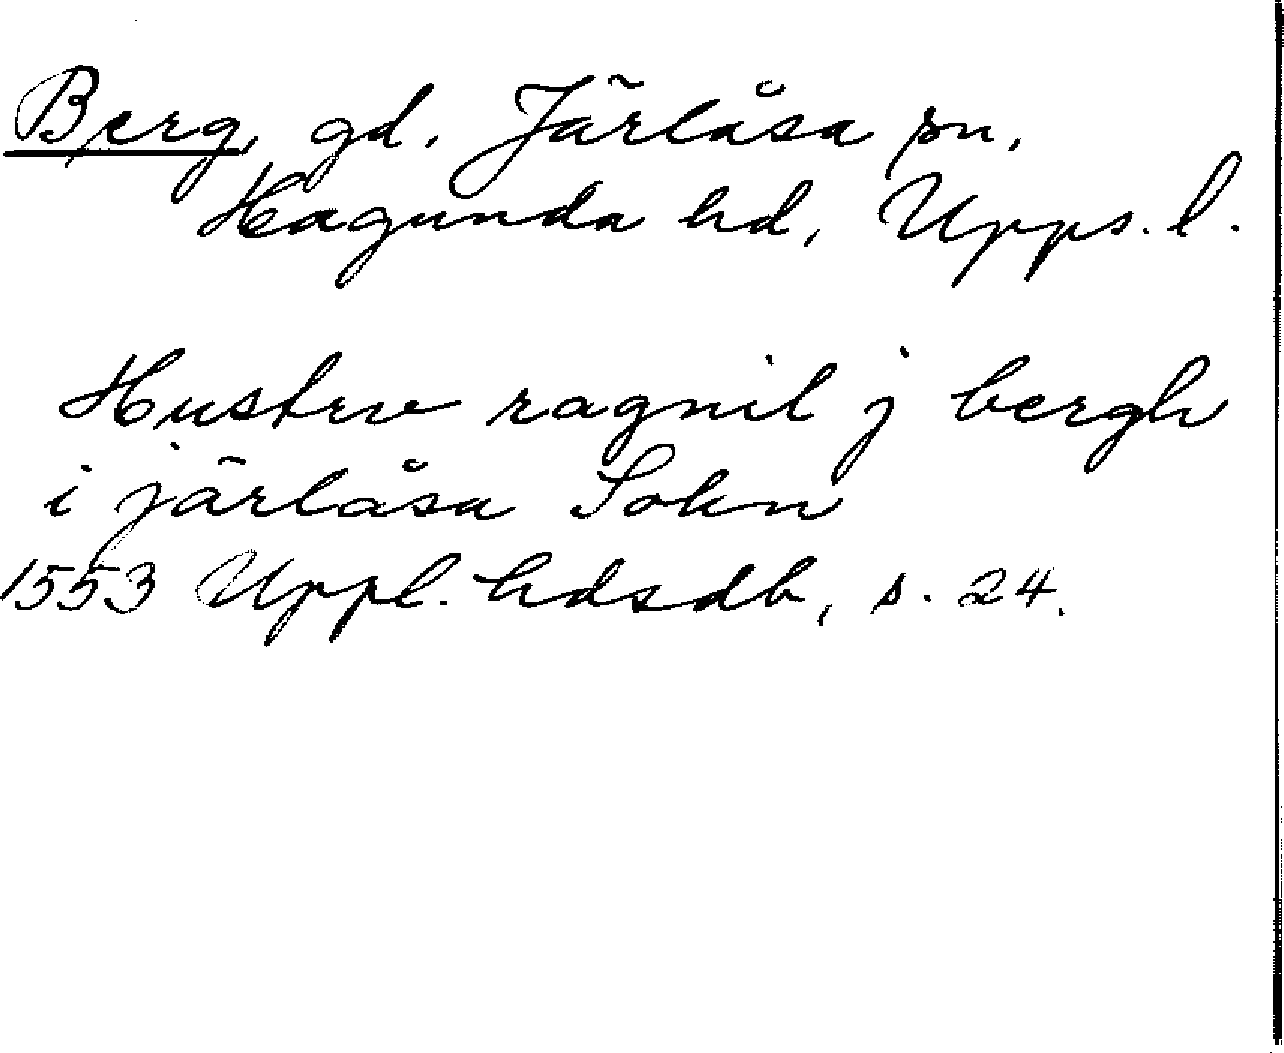 Berg, gd. Järlåsa sn,
Hagunda hd, Upps. l.
Hustrv ragnil j bergh
i järlåsa Sokn
1553 Uppl. hdsdb, s. 24.